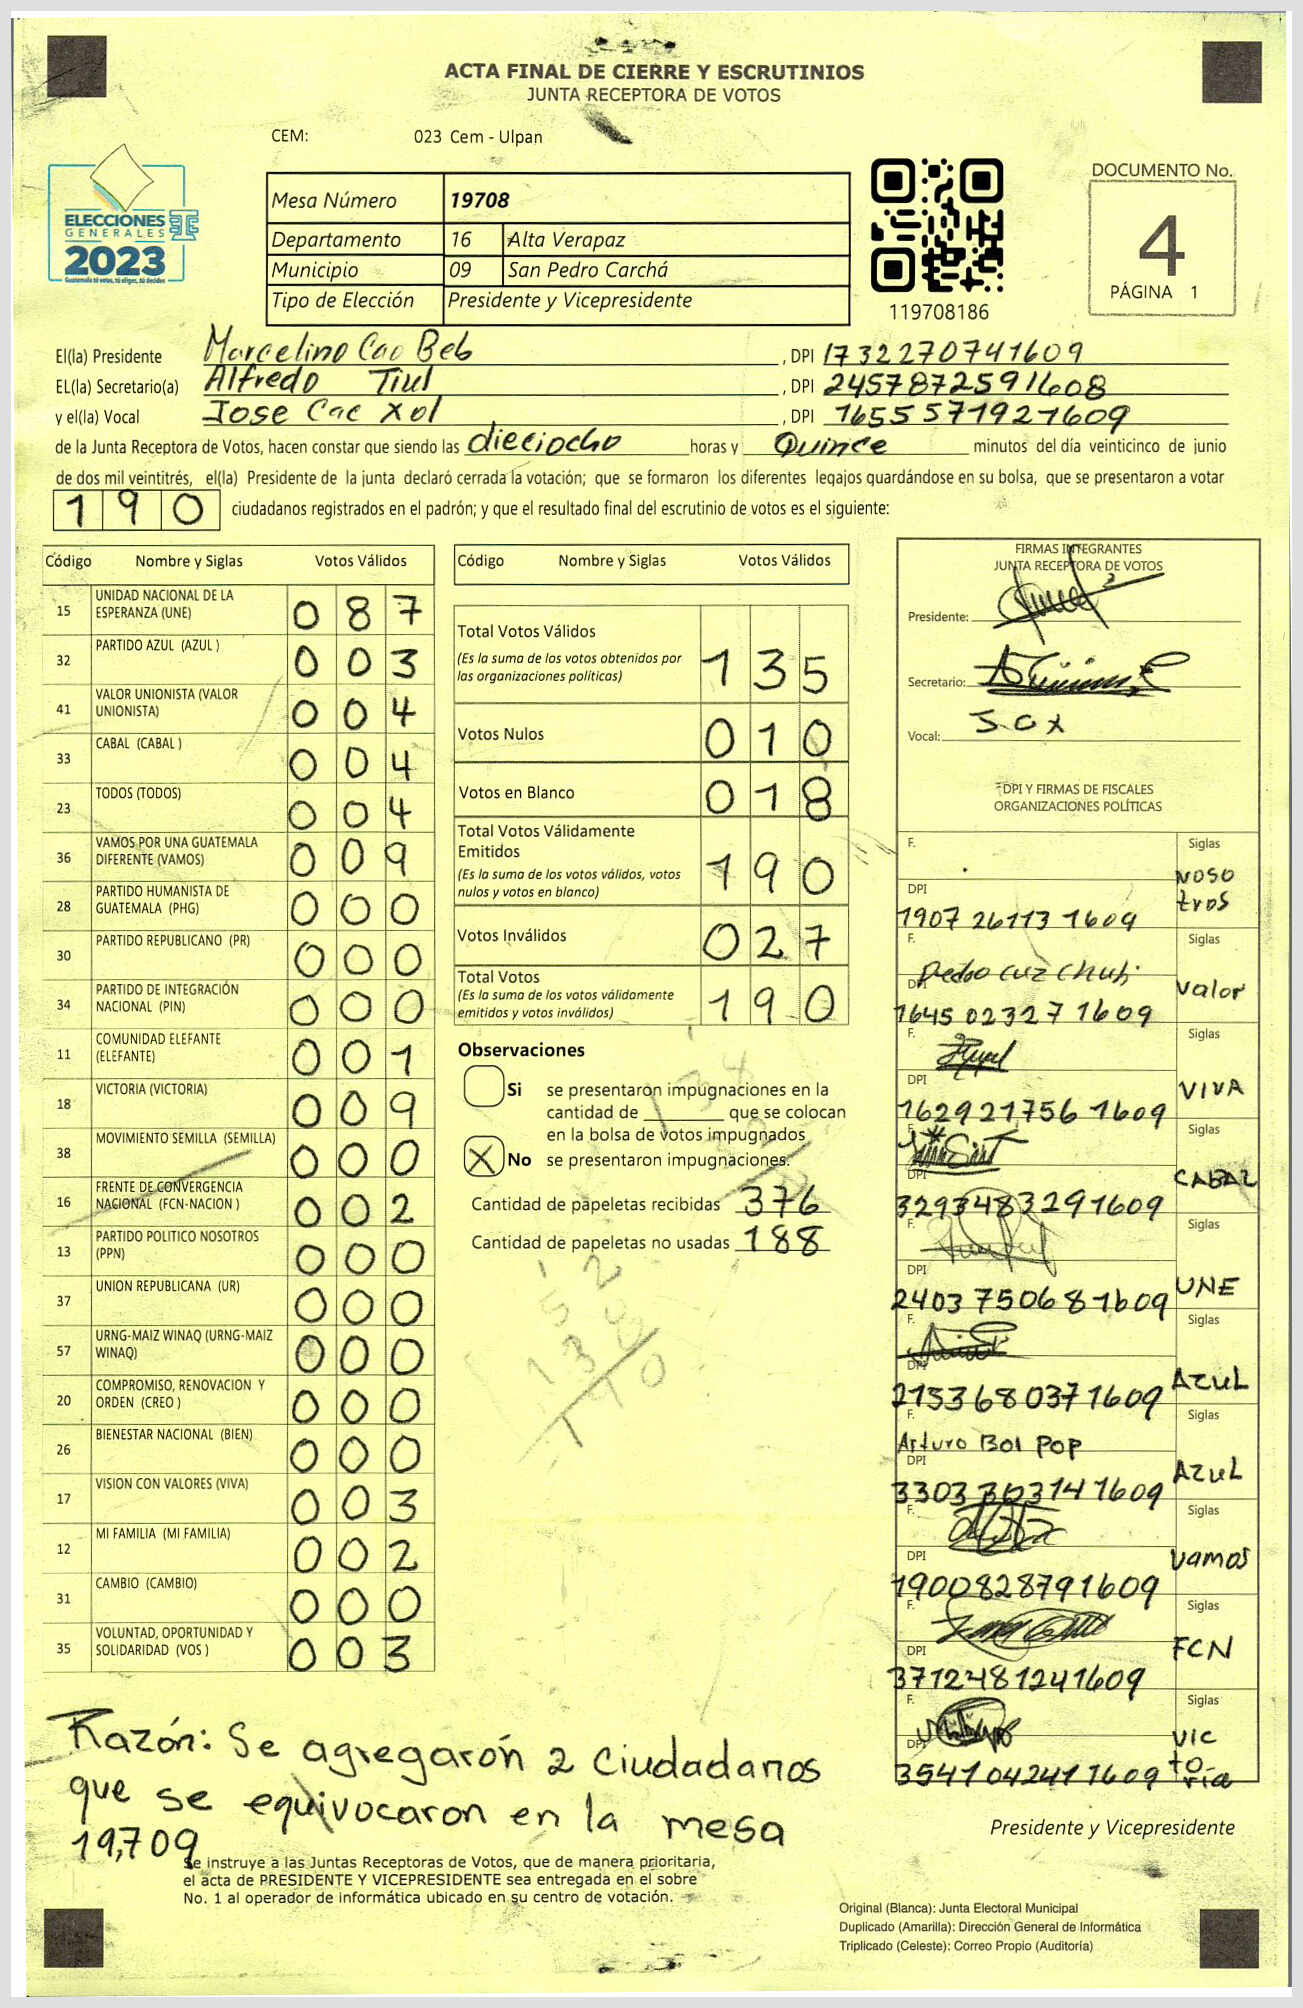 ACTA FINAL DE CIERRE Y ESCRUTINIOS
JUNTA RECEPTORA DE VOTOS
CEM: 023 Cem - Ulpan
ELECCIONES
GENERALES
2023
Guatemala tú votas, tú eliges, tú decides
Mesa Número 19708
Departamento 16 Alta Verapaz
Municipio 09 San Pedro Carchá
Tipo de Elección Presidente y Vicepresidente
119708186
DOCUMENTO No.
4
PÁGINA 1
El(la) Presidente Marcelino Cao Beb, DPI 1732270741609
EL(la) Secretario(a) Alfredo Tiul, DPI 2457872591608
y el(la) Vocal Jose Cac Xol, DPI 1655571921609
de la Junta Receptora de Votos, hacen constar que siendo las dieciocho horas y Quince minutos del día veinticinco de junio
de dos mil veintitrés, el(la) Presidente de la junta declaró cerrada la votación; que se formaron los diferentes legajos guardándose en su bolsa, que se presentaron a votar
190 ciudadanos registrados en el padrón; y que el resultado final del escrutinio de votos es el siguiente:
Código Nombre y Siglas Votos Válidos
15 UNIDAD NACIONAL DE LA ESPERANZA (UNE) 087
32 PARTIDO AZUL (AZUL ) 003
41 VALOR UNIONISTA (VALOR UNIONISTA) 004
33 CABAL (CABAL ) 004
23 TODOS (TODOS) 004
36 VAMOS POR UNA GUATEMALA DIFERENTE (VAMOS) 009
28 PARTIDO HUMANISTA DE GUATEMALA (PHG) 000
30 PARTIDO REPUBLICANO (PR) 000
34 PARTIDO DE INTEGRACIÓN NACIONAL (PIN) 000
11 COMUNIDAD ELEFANTE (ELEFANTE) 001
18 VICTORIA (VICTORIA) 009
38 MOVIMIENTO SEMILLA (SEMILLA) 000
16 FRENTE DE CONVERGENCIA NACIONAL (FCN-NACION ) 002
13 PARTIDO POLITICO NOSOTROS (PPN) 000
37 UNION REPUBLICANA (UR) 000
57 URNG-MAIZ WINAQ (URNG-MAIZ WINAQ) 000
20 COMPROMISO, RENOVACION Y ORDEN (CREO ) 000
26 BIENESTAR NACIONAL (BIEN) 000
17 VISION CON VALORES (VIVA) 003
12 MI FAMILIA (MI FAMILIA) 002
31 CAMBIO (CAMBIO) 000
35 VOLUNTAD, OPORTUNIDAD Y SOLIDARIDAD (VOS ) 003
Código Nombre y Siglas Votos Válidos
Total Votos Válidos 135
(Es la suma de los votos obtenidos por
las organizaciones políticas)
Votos Nulos 010
Votos en Blanco 018
Total Votos Válidamente
Emitidos 190
(Es la suma de los votos válidos, votos
nulos y votos en blanco)
Votos Inválidos 027
Total Votos 190
(Es la suma de los votos válidamente
emitidos y votos inválidos)
Observaciones
Si se presentaron impugnaciones en la
cantidad de ________ que se colocan
en la bolsa de votos impugnados
X No se presentaron impugnaciones.
Cantidad de papeletas recibidas 376
Cantidad de papeletas no usadas 188
FIRMAS INTEGRANTES
JUNTA RECEPTORA DE VOTOS
Presidente:
Secretario:
Vocal: J.C X
DPI Y FIRMAS DE FISCALES
ORGANIZACIONES POLÍTICAS
F. Siglas
DPI NOSO
1907 26113 1609 tros
F. Siglas
Pedro Cuz Chub
DPI Valor
1645 02327 1609
F. Siglas
DPI VIVA
162921756 1609
F. Siglas
DPI CABAL
3293483291609
F. Siglas
DPI UNE
2403750681609
F. Siglas
DPI AZUL
2153680371609
F. Siglas
Arturo Bol Pop
DPI AZUL
3303303141609
F. Siglas
DPI Vamos
1900828791609
F. Siglas
DPI FCN
3712481241609
F. Siglas
DPI VIC
3541042411609 toria
Razón: Se agregarón 2 ciudadanos
que se equivocaron en la mesa
19,709
Presidente y Vicepresidente
Se instruye a las Juntas Receptoras de Votos, que de manera prioritaria,
el acta de PRESIDENTE Y VICEPRESIDENTE sea entregada en el sobre
No. 1 al operador de informática ubicado en su centro de votación.
Original (Blanca): Junta Electoral Municipal
Duplicado (Amarilla): Dirección General de Informática
Triplicado (Celeste): Correo Propio (Auditoría)